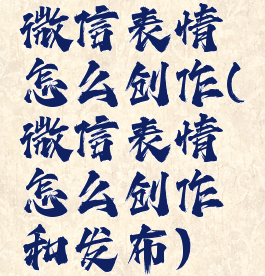 微信表情
怎么创作(
微信表情
怎么创作
和发布)